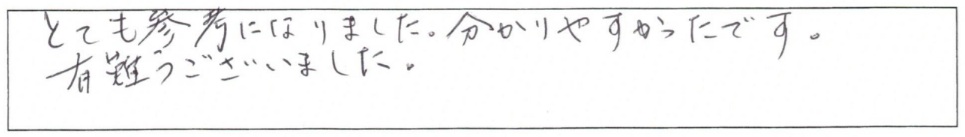 とても参考になりました。分かりやすかったです。
有難うございました。